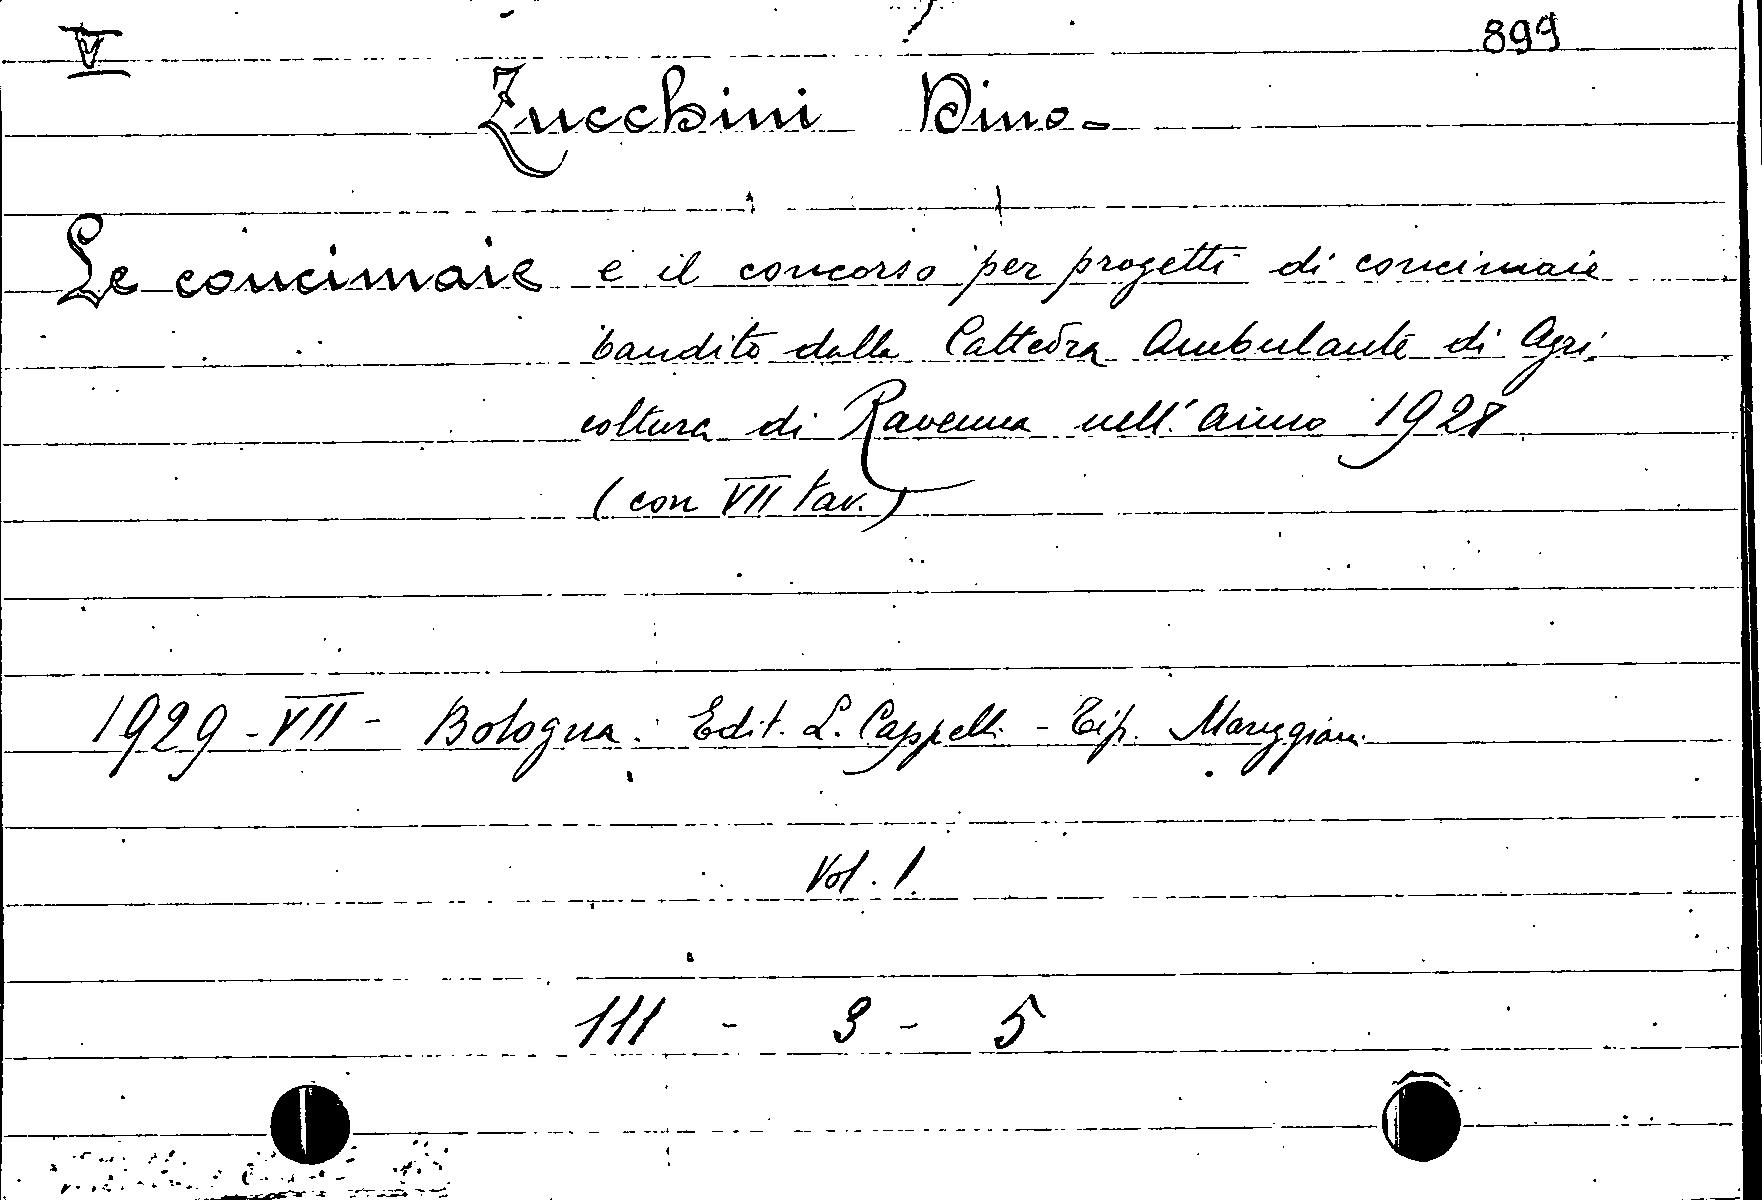 V 899
Zucchini Dino-
Le concimaie e il concorso per progetti di concimaie
bandito dalla Cattedra Ambulante di Agri-
coltura di Ravenna nell'anno 1928
(con VII tav.)
1929-VII- Bologna. Edit. L. Cappelli - Tip. Mareggiani
Vol. 1.
III - 3 - 5